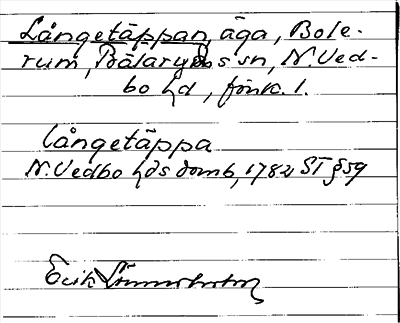 Långetäppan, äga, Bole-
rum, Bälaryds sn, N. Ved-
bo hd, fönk. 1.
långetäppa
N. Vedbo hds domb, 1782 ST § 59
Erik